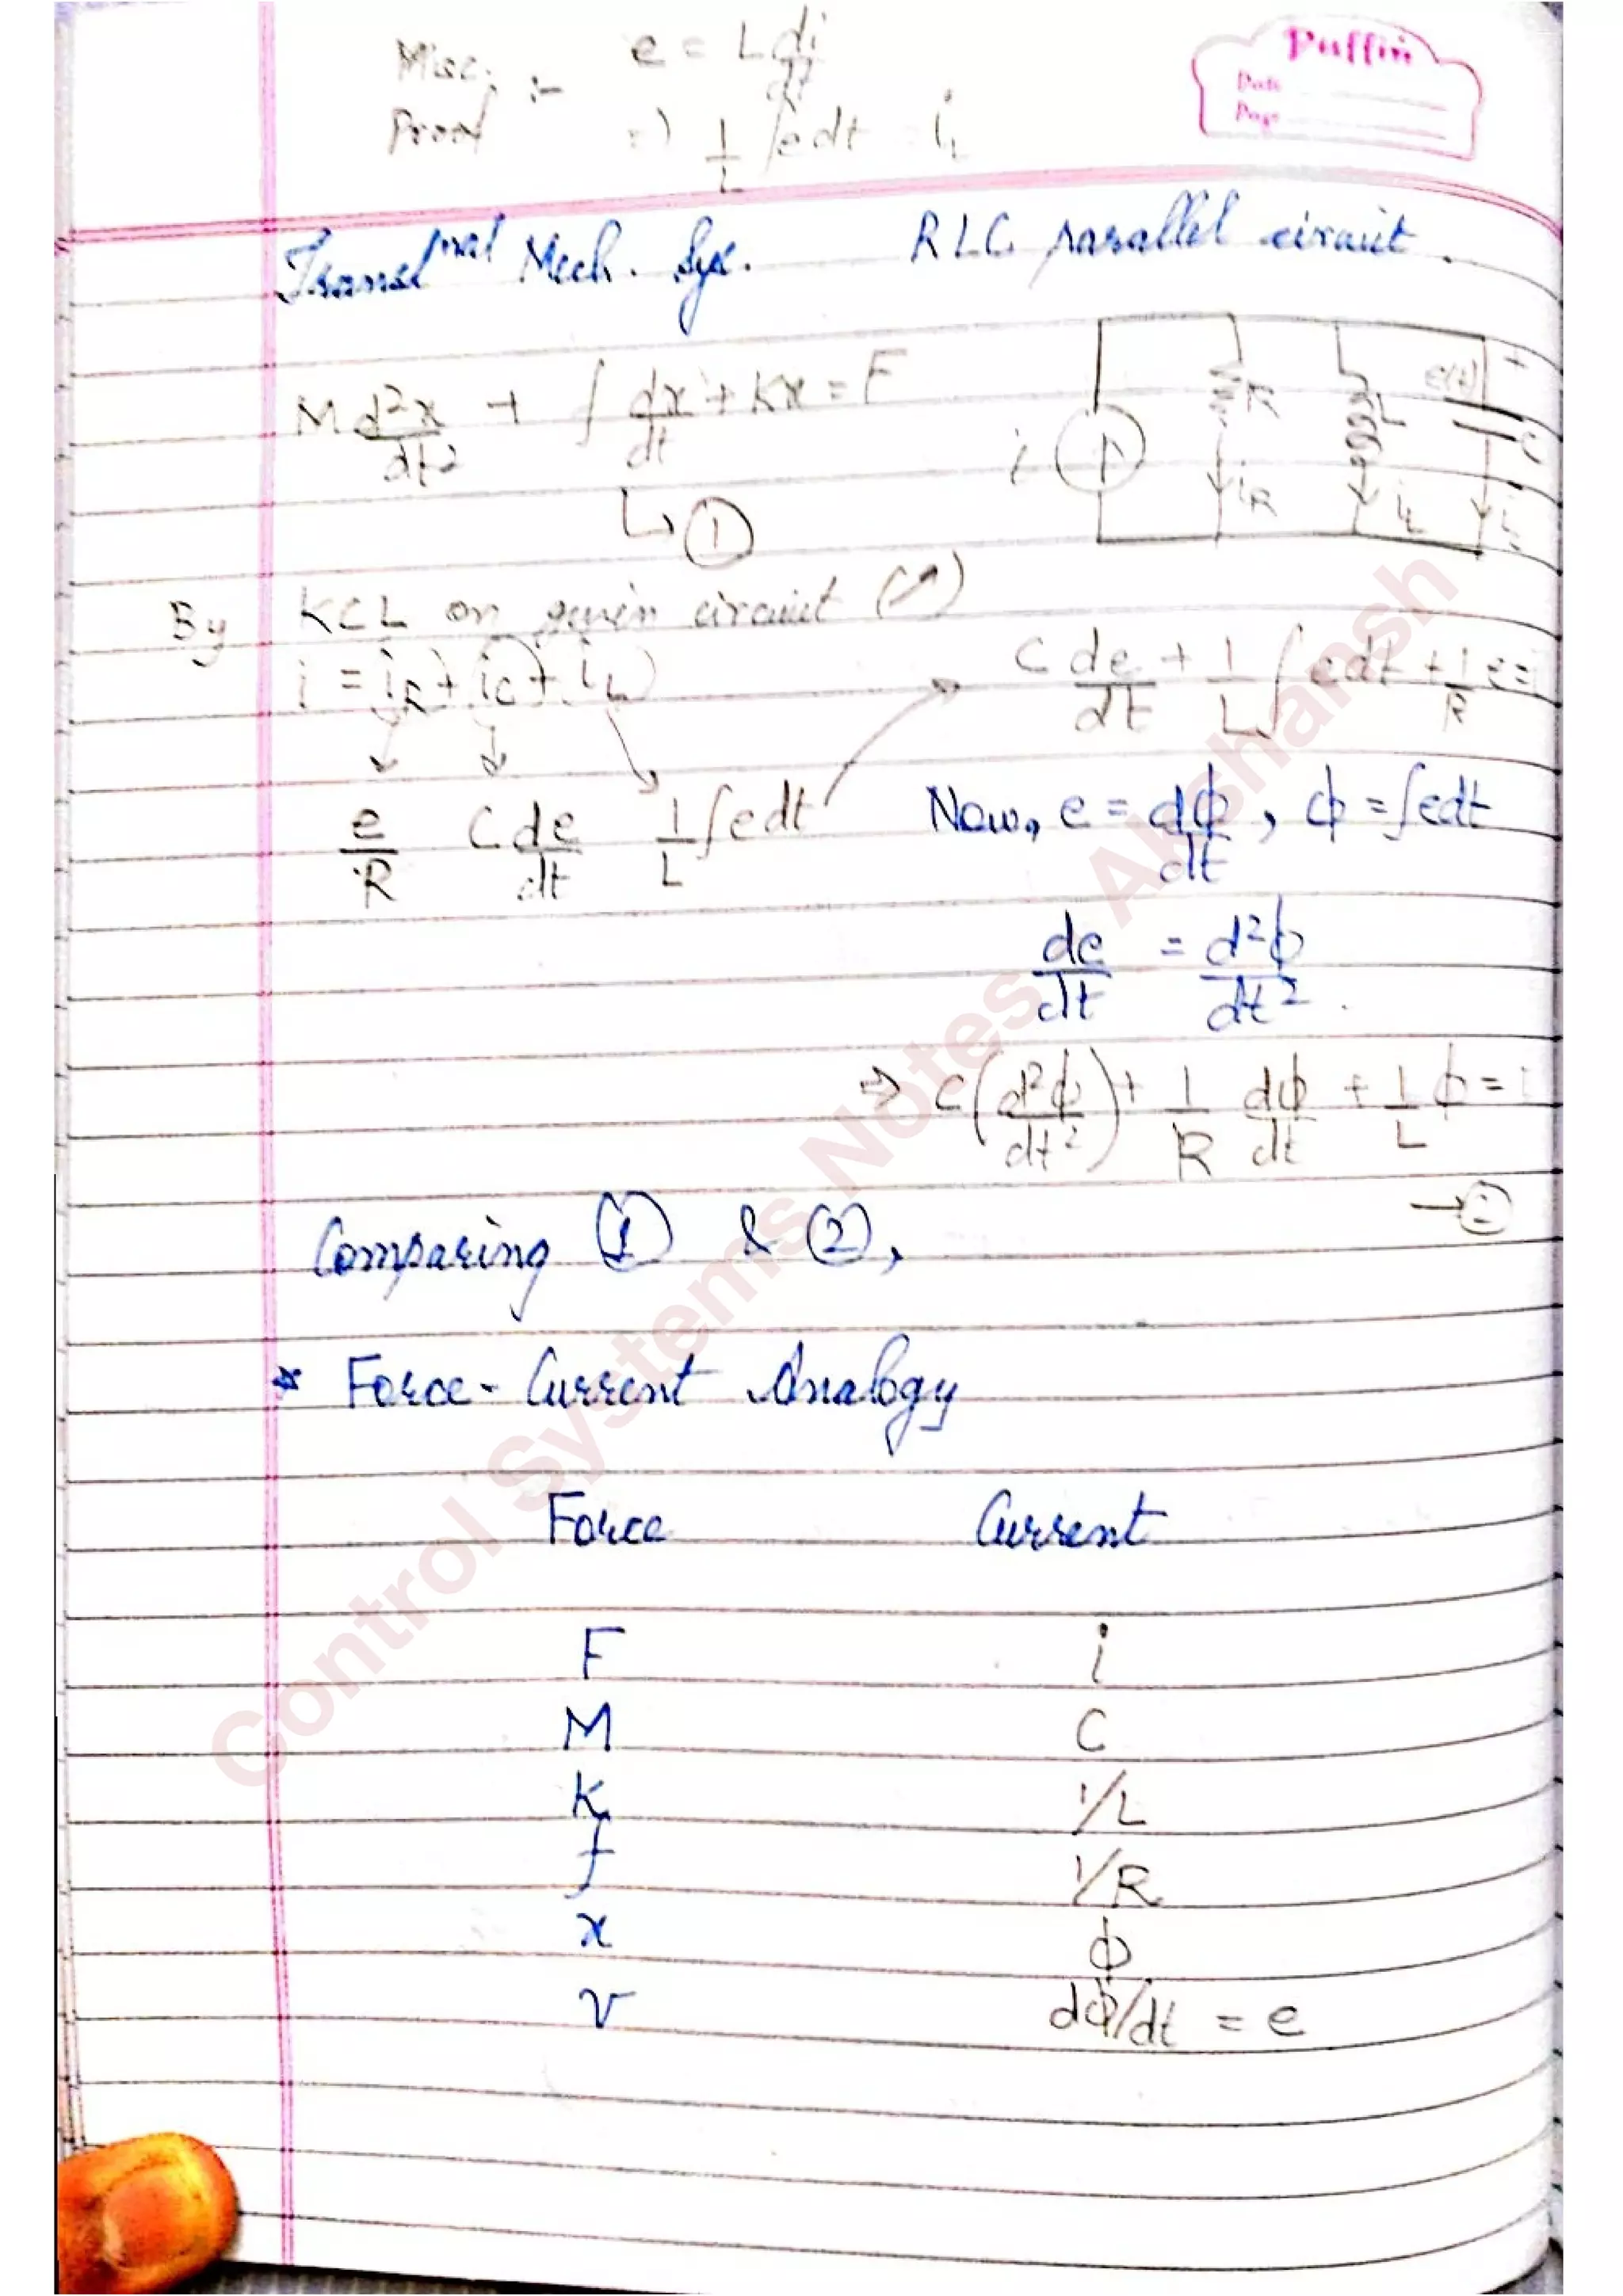 Misc. Proof :- e = L di/dt
=) 1/L ∫edt = iL
Puffin
Date
Page
Transl^nal Mech. Sys. RLC parallel circuit.
M d²x/dt² + f dx/dt + Kx = F
↳ ①
i R iR L iL e(t) + C
By KCL on given circuit (↗)
i = iR + iC + iL
e/R C de/dt 1/L ∫edt
C de/dt + 1/L ∫edt + 1/R e =
Now, e = dϕ/dt, ϕ = ∫edt
de/dt = d²ϕ/dt².
⇒ C(d²ϕ/dt²) + 1/R dϕ/dt + 1/L ϕ = i
→ ②
Comparing ① & ②,
* Force-Current Analogy
Force Current
F i
M C
K 1/L
f 1/R
x ϕ
v dϕ/dt = e
Control Systems Notes Akshansh